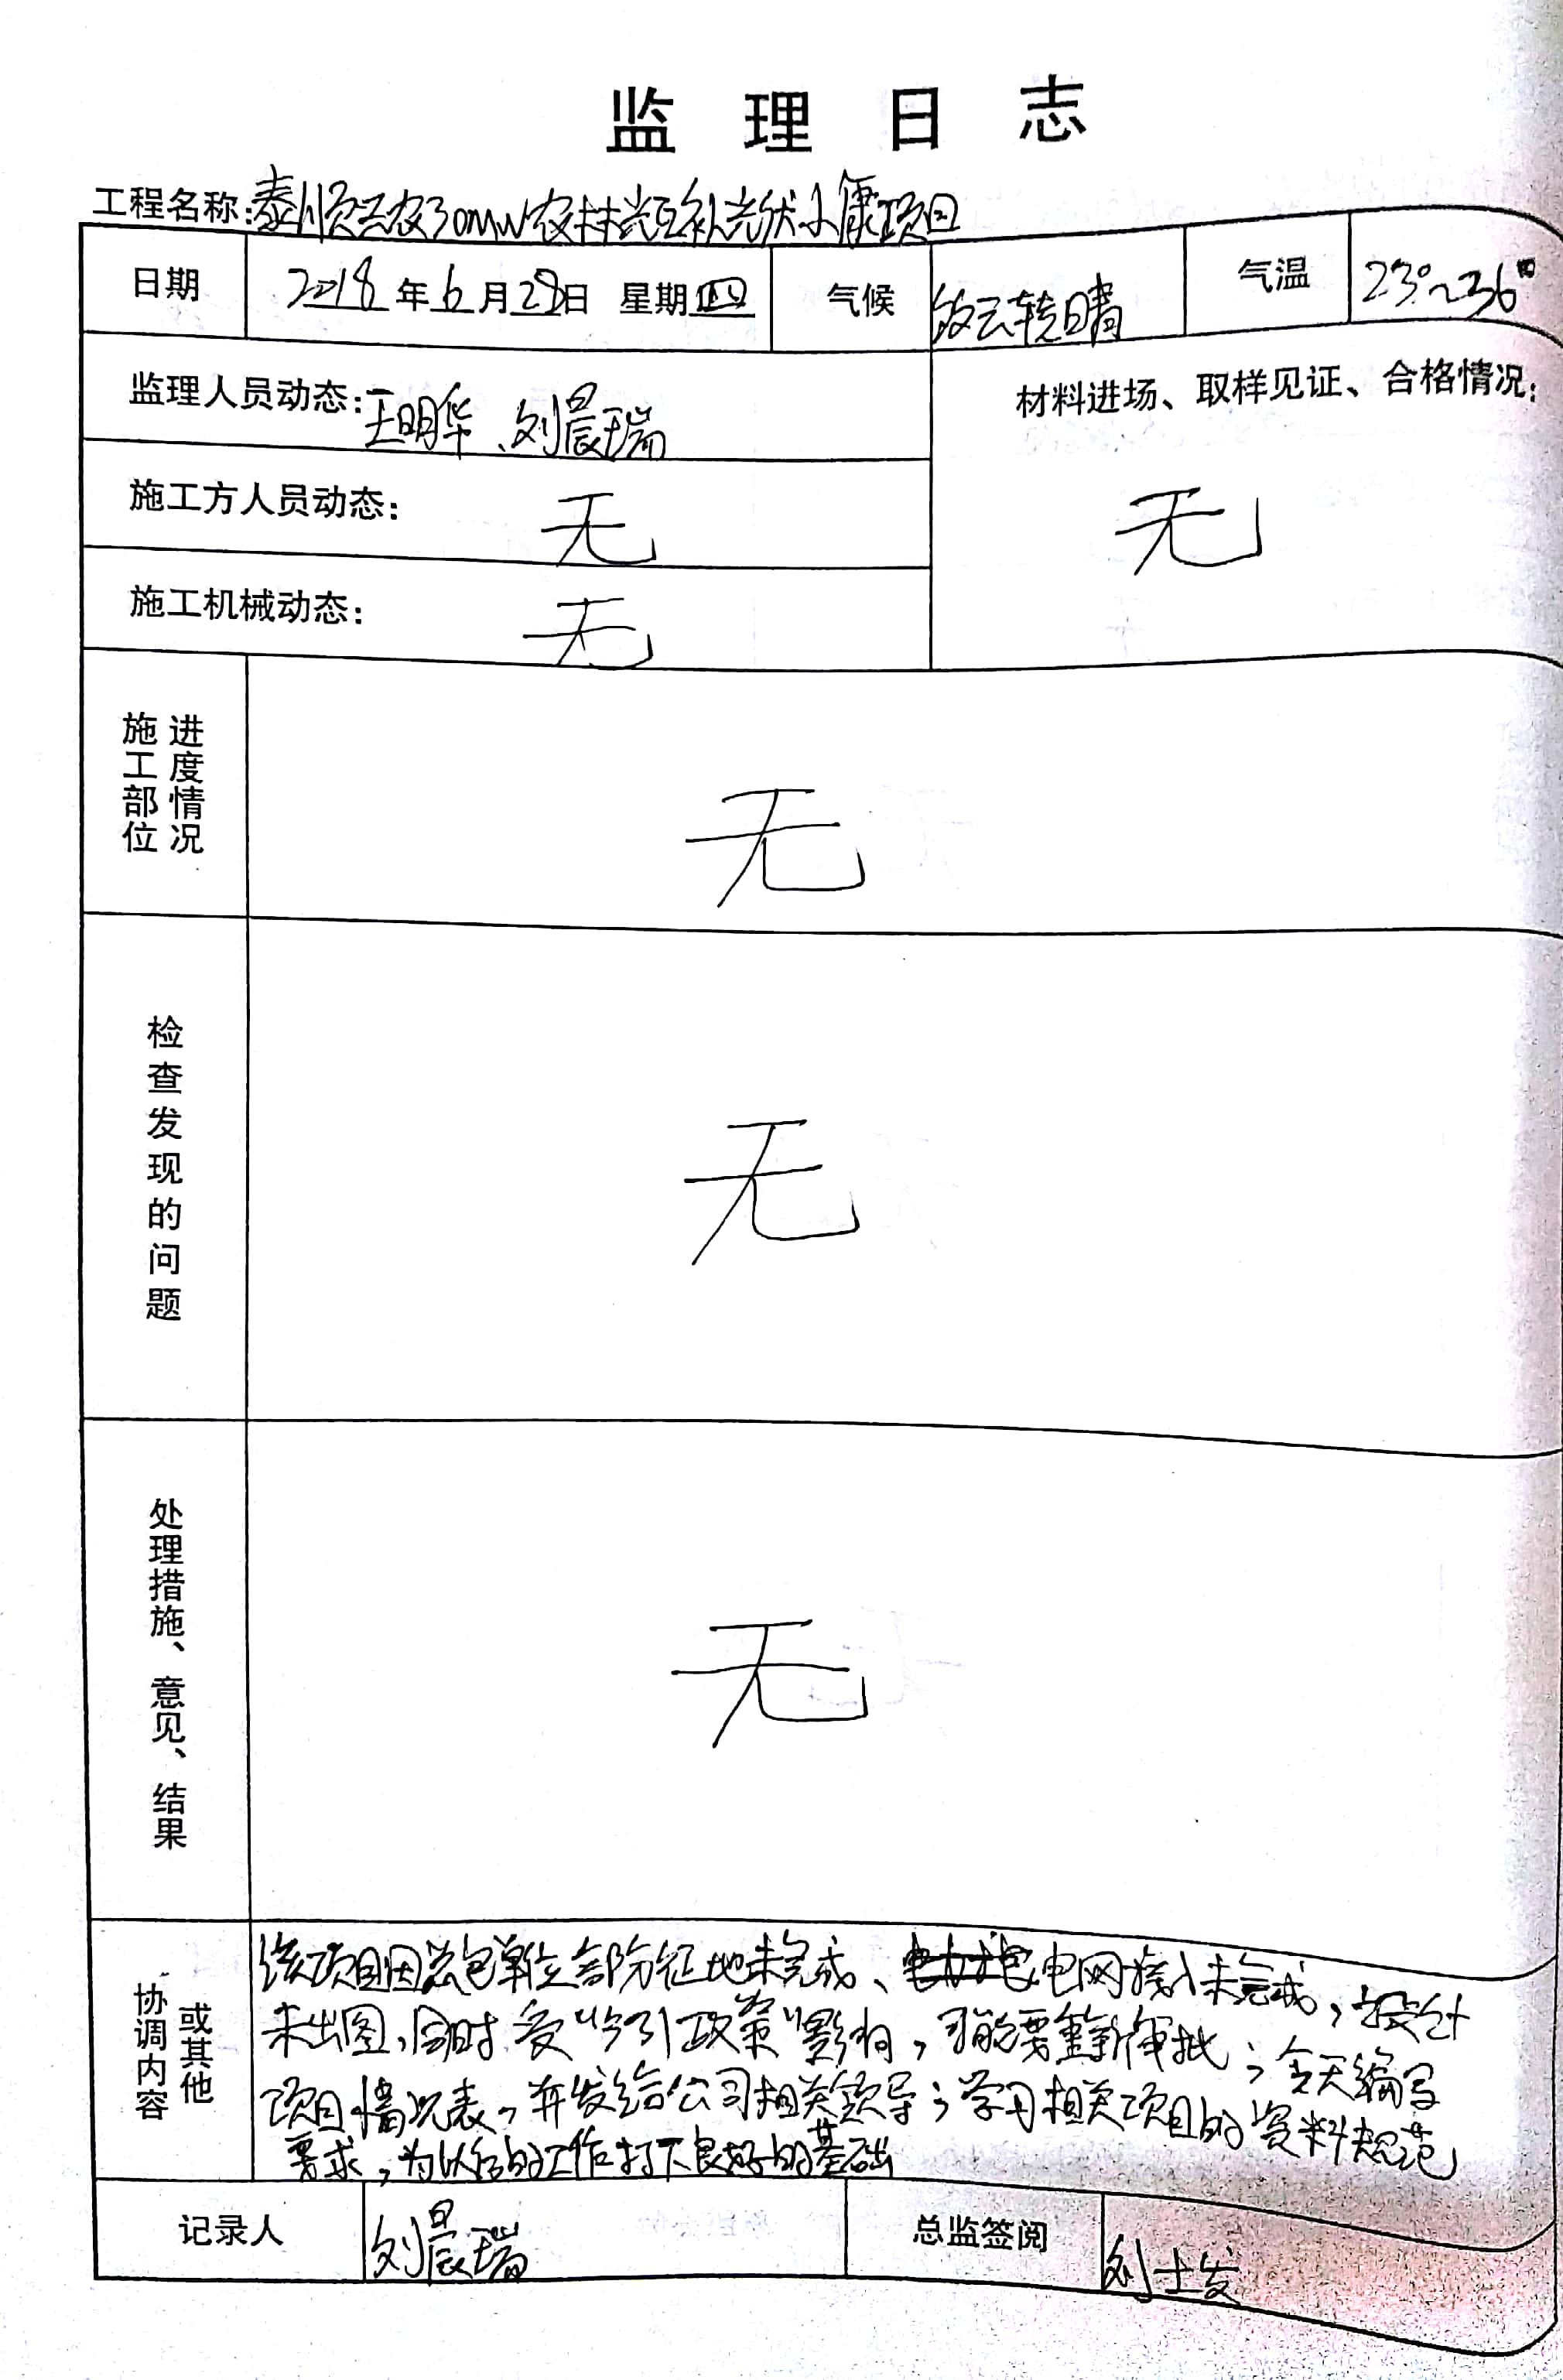 监理日志
工程名称:泰顺三农30MW农村光互补光伏小康项目
日期 2018年6月28日 星期四 气候 多云转晴 气温 23°~36°
监理人员动态:王明华、刘晨瑞 材料进场、取样见证、合格情况:
施工方人员动态: 无 无
施工机械动态: 无
施工部位 进度情况 无
检查发现的问题 无
处理措施、意见、结果 无
协调内容 或其他
该项目因总包单位部份征地未完成、电网接入未完成,设计
未出图,同时受“531政策”影响,可能要重新审批;今天编写
项目情况表,并发给公司相关领导;学习相关项目的资料规范
要求,为以后的工作打下良好的基础
记录人 刘晨瑞 总监签阅 刘士发